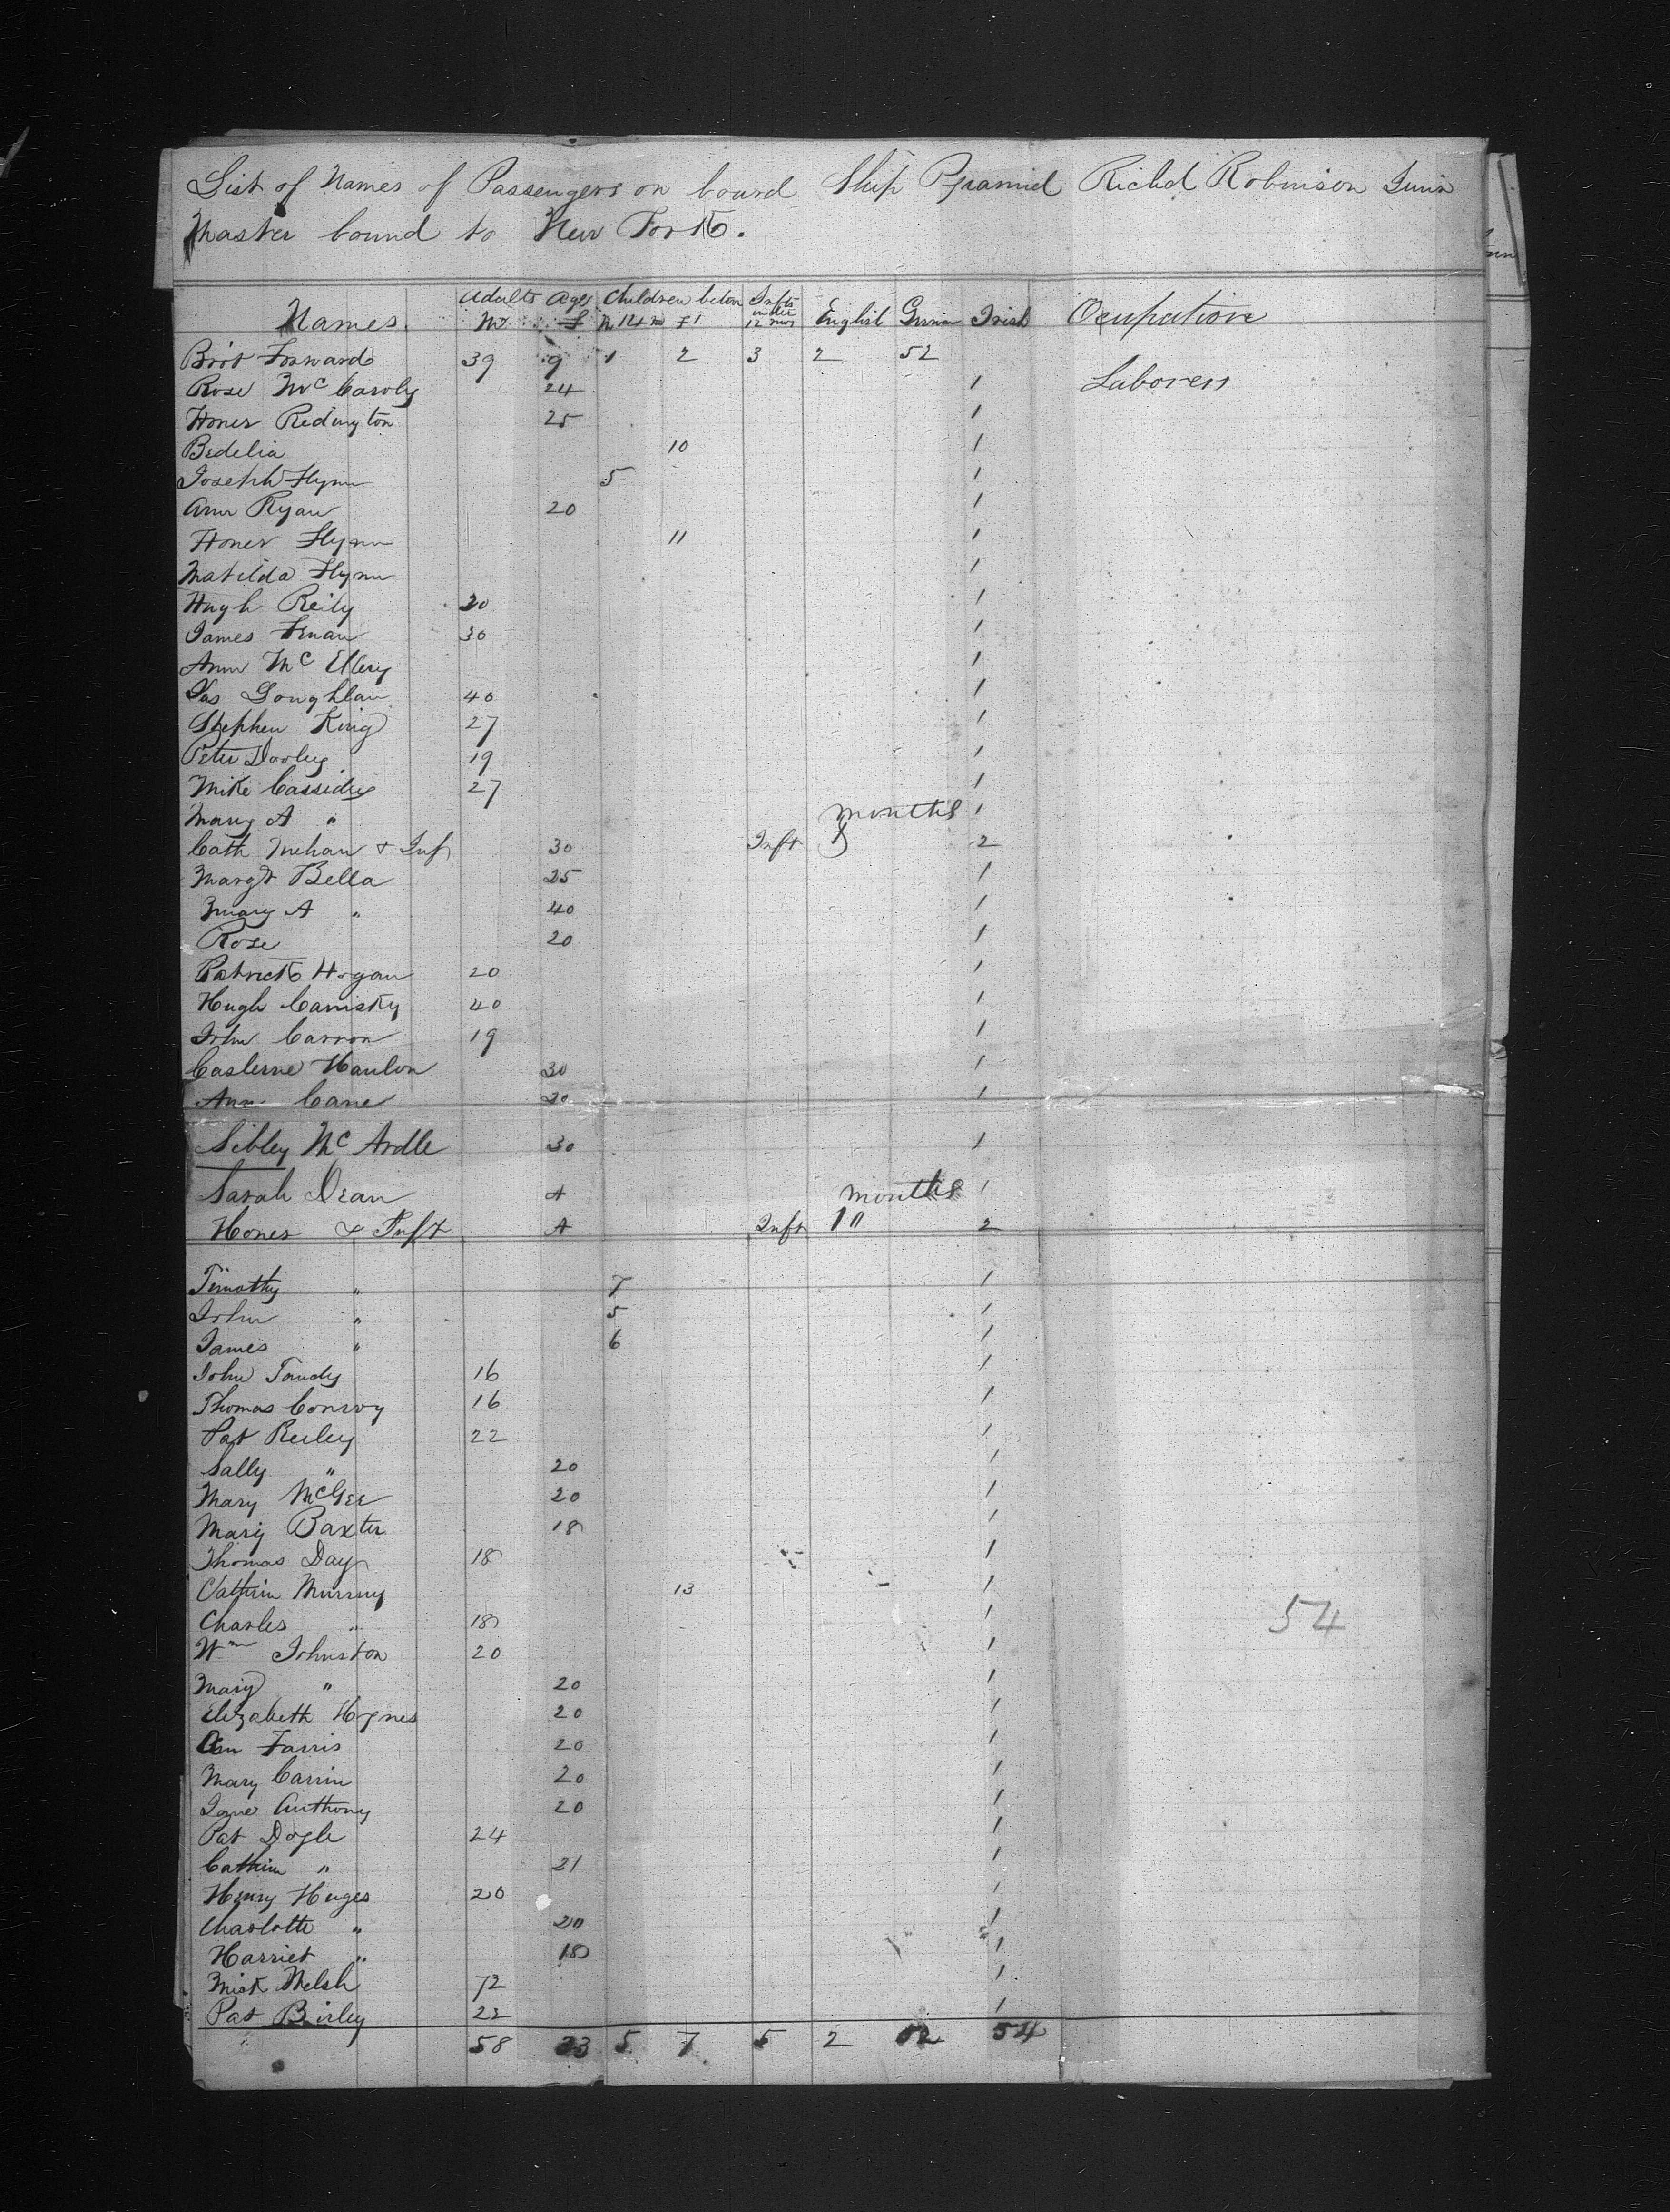 List of Names of Passengers on board Ship Pyramid Richd Robinson Junr
Master bound to New York.
Names. Adults Ages Children betwn Infts under 12 mos English German Irish Ocupation
M f M 14 m f 1
Brot Forward 39 9 1 2 3 2 52
Rose McCaroly 24 1 Laborers
Honer Redington 25 1
Bedelia 10 1
Joseph Flynn 5 1
Ann Ryan 20 1
Honer Flynn 11 1
Matilda Flynn 1
Hugh Reily 20 1
James 30 1
Ann Mc Ellery 1
Jas Goughlan 40 1
Stephen King 27 1
Peter Dooley 19 1
Mike Cassidy 27 1
Mary A " months 1
Cath Mehan & Inf 30 Inft 8 2
Margt Bella 25 1
Mary A " 40 1
Rose 20 1
Patrick Hogan 20 1
Hugh Camisky 40 1
John Carron 19 1
Caslerne Hanlon 30 1
Ann Cane 20 1
Sibley Mc Ardle 30 1
Sarah Dean A months 1
Hones & Inft A Inft 10 2
Timothy " 7 1
John " 5 1
James " 6 1
John Tandy 16 1
Thomas Conroy 16 1
Pat Reiley 22 1
Sally " 20 1
Mary McGee 20 1
Mary Baxter 18 1
Thomas Day 18 1
Cathrin Murray 13 1
Charles " 18 1
54
Wm Johnston 20 1
Mary " 20 1
Elizabeth Hynes 20 1
Ann Farris 20 1
Mary Carrin 20 1
Jane Anthony 20 1
Pat Dogle 24 1
Cathrin " 21 1
Henry Huges 20 1
Charlotte " 20 1
Harriet " 18 1
Mick Welsh 72 1
Pat Birley 22 1
58 33 5 7 5 2 52 54